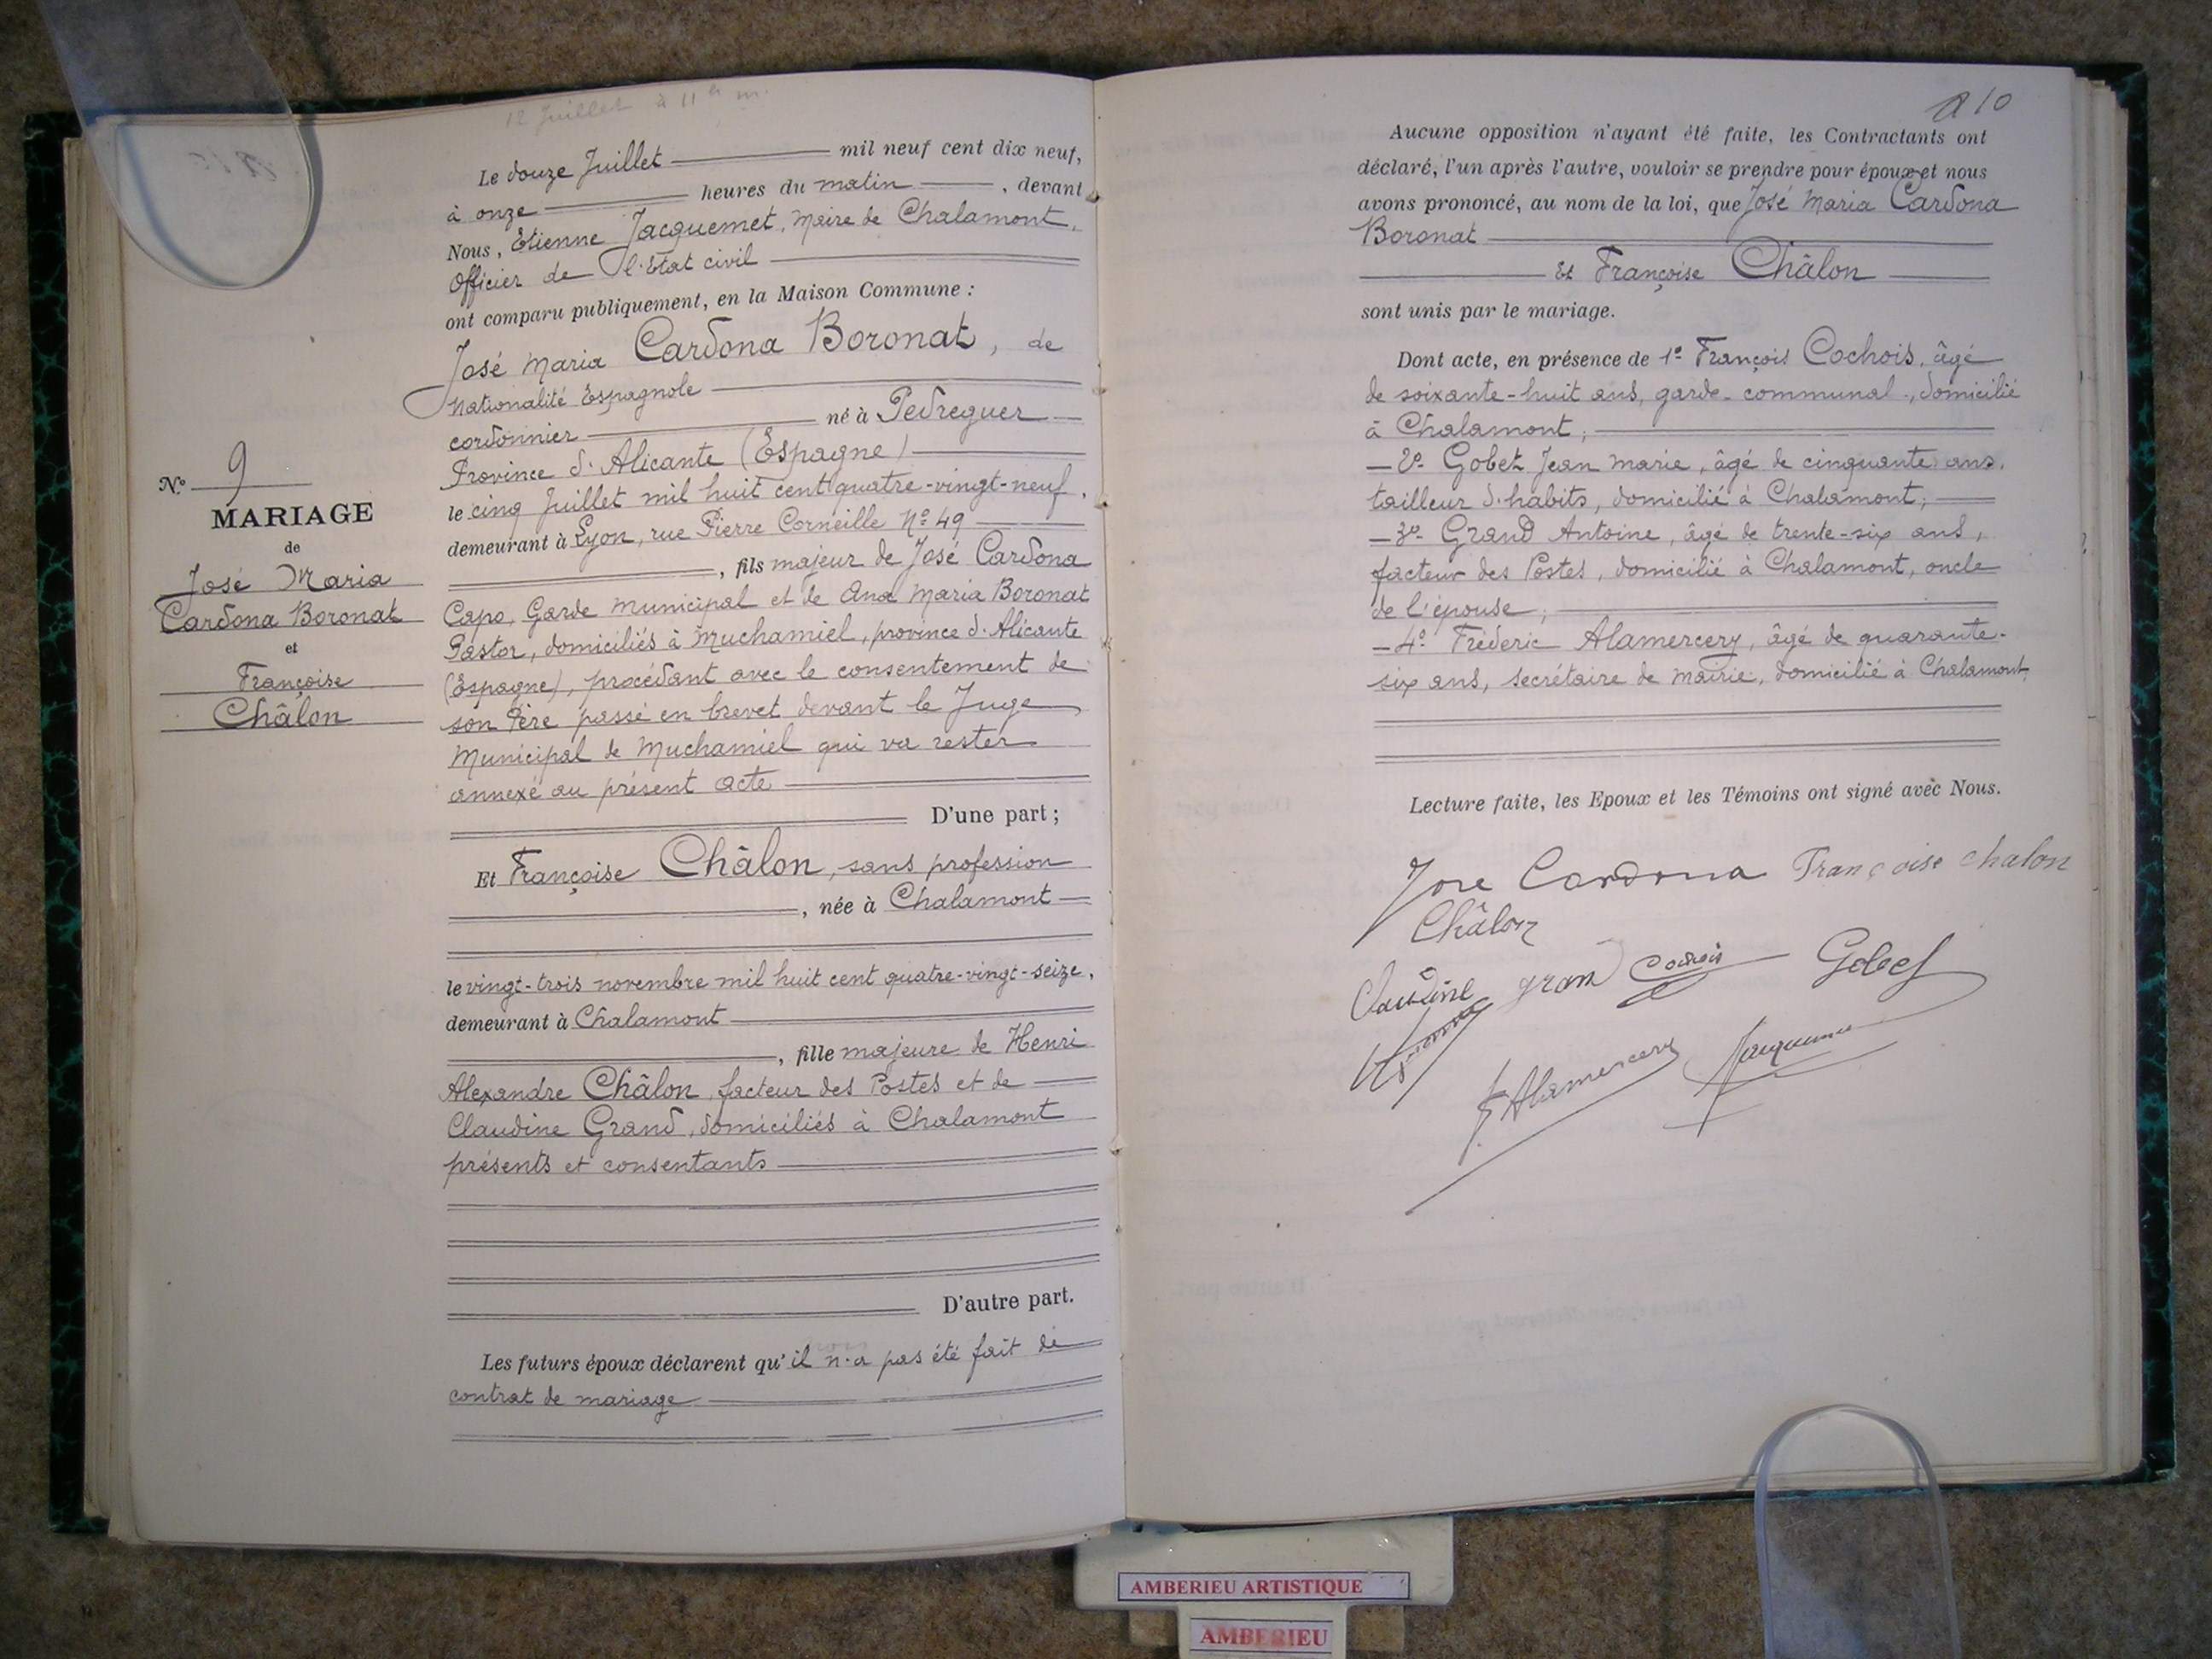 12 Juillet à 11 h m.
Le douze Juillet mil neuf cent dix neuf,
à onze heures du matin, devant
Nous, Etienne Jacquemet, Maire de Chalamont,
Officier de l'Etat civil
ont comparu publiquement, en la Maison Commune :
José Maria Cardona Boronat, de
Nationalité Espagnole
cordonnier né à Pedreguer
Province d'Alicante (Espagne)
le cinq Juillet mil huit cent quatre-vingt-neuf,
demeurant à Lyon, rue Pierre Corneille No 49
, fils majeur de José Cardona
Capo, Garde municipal et de Ana Maria Boronat
Pastor, domiciliés à Muchamiel, province d'Alicante
(Espagne), procédant avec le consentement de
son Père passé en brevet devant le Juge
Municipal de Muchamiel qui va rester
annexé au présent acte
D'une part ;
Et Françoise Châlon, sans profession
, née à Chalamont
le vingt-trois novembre mil huit cent quatre-vingt-seize,
demeurant à Chalamont
, fille majeure de Henri
Alexandre Châlon, facteur des Postes et de
Claudine Grand, domiciliés à Chalamont
présents et consentants
D'autre part.
Les futurs époux déclarent qu'il n'a pas été fait de
contrat de mariage
No 9
MARIAGE
de
José Maria
Cardona Boronat
et
Françoise
Châlon
10
Aucune opposition n'ayant été faite, les Contractants ont
déclaré, l'un après l'autre, vouloir se prendre pour époux et nous
avons prononcé, au nom de la loi, que José Maria Cardona
Boronat
Et Françoise Châlon
sont unis par le mariage.
Dont acte, en présence de 1o François Cochois, âgé
de soixante-huit ans, garde-communal, domicilié
à Chalamont ;
— 2o Gobet Jean Marie, âgé de cinquante ans,
tailleur d'habits, domicilié à Chalamont ;
— 3o Grand Antoine, âgé de trente-six ans,
facteur des Postes, domicilié à Chalamont, oncle
de l'épouse ;
— 4o Fréderic Alamercery, âgé de quarante-
six ans, secrétaire de Mairie, domicilié à Chalamont,
Lecture faite, les Epoux et les Témoins ont signé avec Nous.
Jose Cardona Françoise chalon
Châlon
Claudine grand Cochois Gobet
F Alamercery Jacquemet
AMBERIEU ARTISTIQUE
AMBERIEU